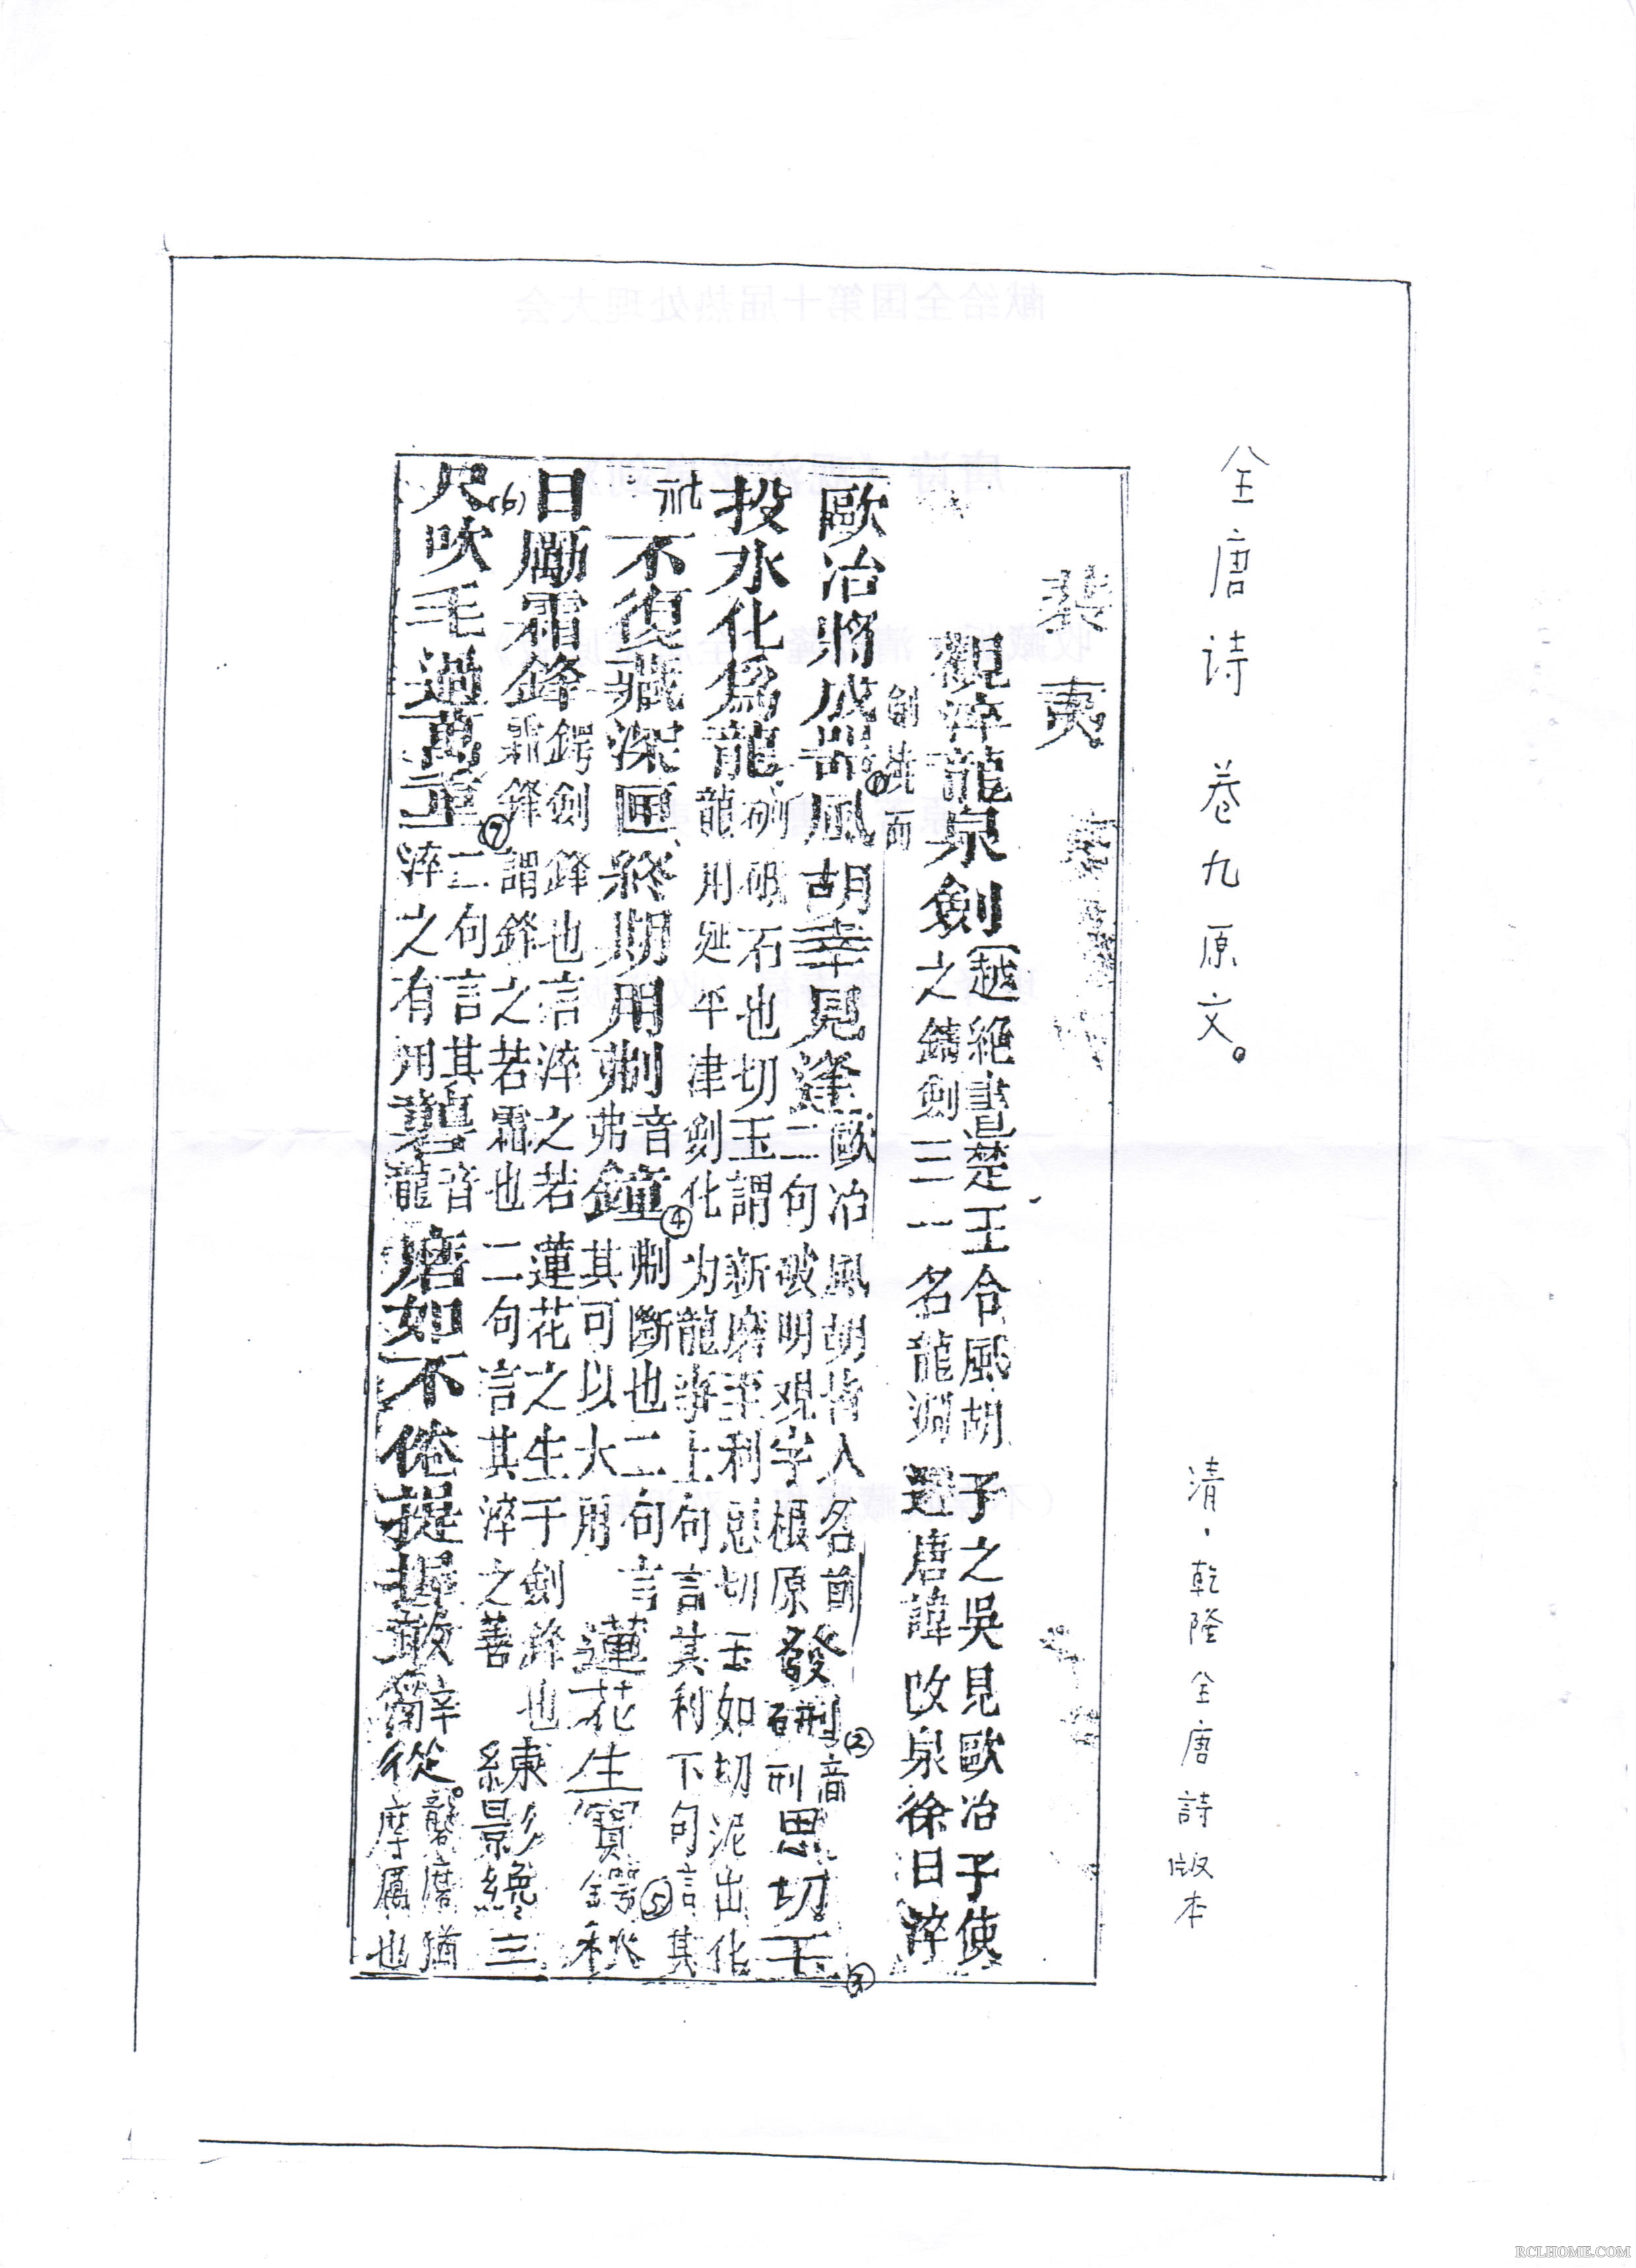 全唐诗 卷九原文。
清·乾隆全唐詩版本
裴夷
觀淬龍泉劍(越絕書楚王令風胡子之吳見歐冶子使
之鑄劍三一名龍淵避唐諱改泉徐日淬
劍焠而
歐冶將成器①風胡幸見逢歐冶風胡皆人名前
二句破明观字根原發硎②音刑思切玉③
投水化爲龍硎砥石也切玉謂新磨至利忽切玉如切泥出化
龍用延平津劍化为龍事上句言其利下句言其
不復藏深匣終期用剸音鐘④剸斷也二句言
其可以大用蓮花生寶鍔⑤秋
日勵霜鋒(6)鍔劍鋒也言淬之若蓮花之生于劍鋒也
鋒謂鋒之若霜也二句言其淬之善練影
三
尺吹毛過萬重⑦二句言其
淬之有用礱音龍磨如不倦提握敢辭從。礱磨猶
摩厲也
RCLHOME.COM